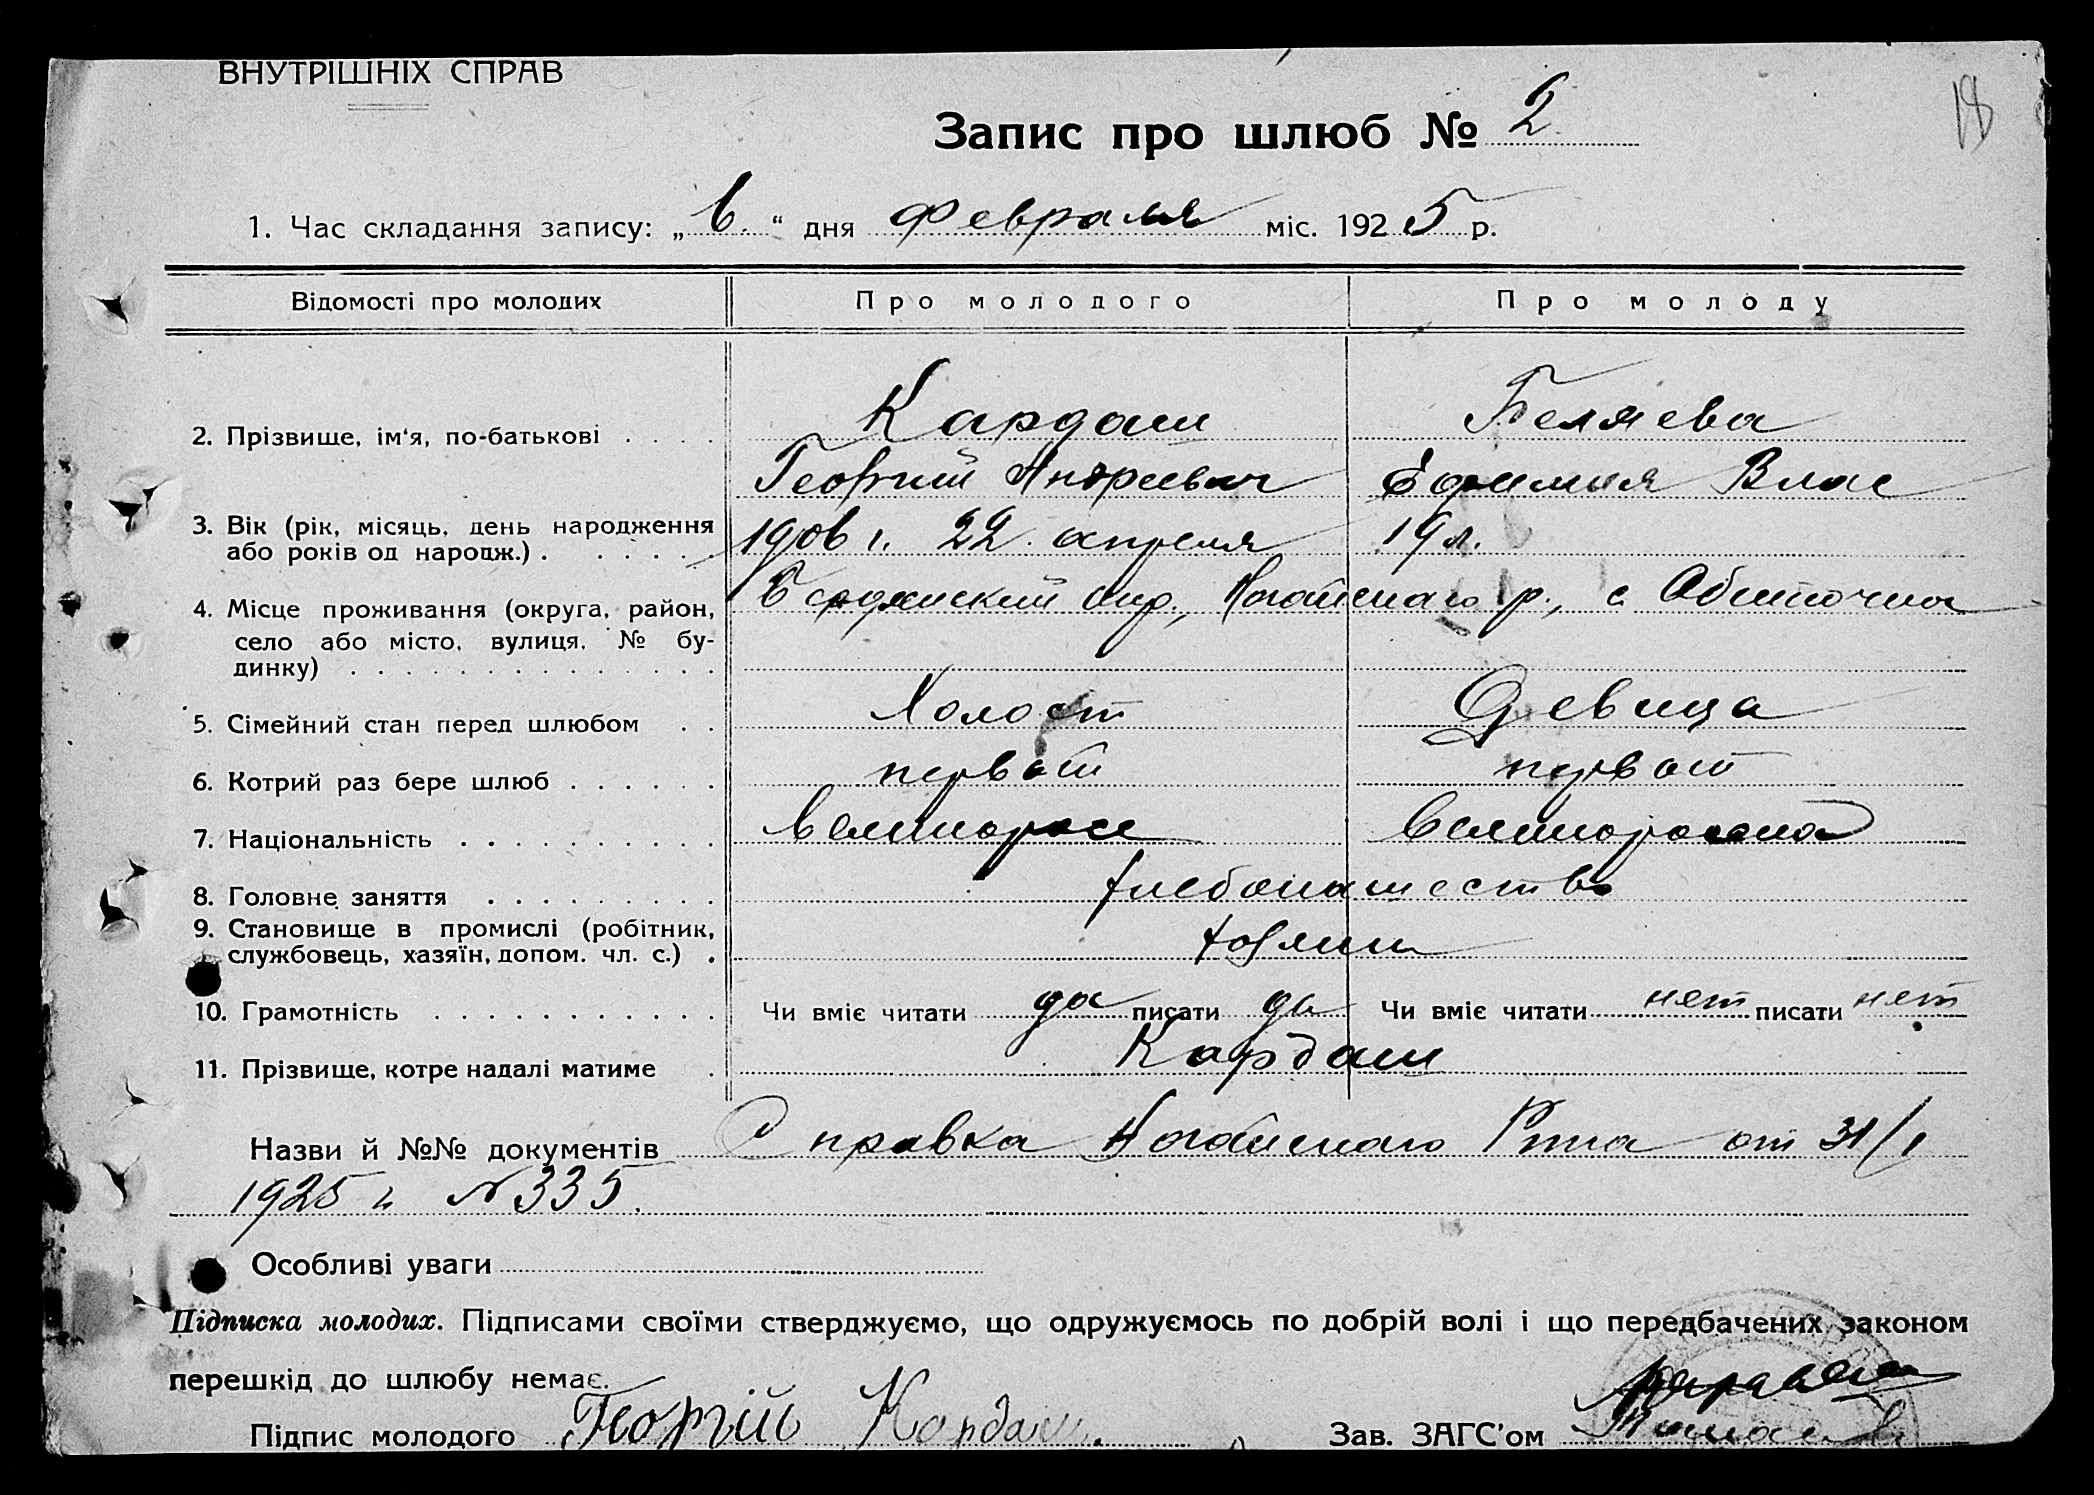 ВНУТРІШНІХ СПРАВ
18
Запис про шлюб № 2
1. Час складання запису: „6“ дня февраля міс. 1925 р.
Відомості про молодих Про молодого Про молоду
Кардаш Беляева
2. Прізвище, ім'я, по-батькові
Георгий Андреевич Ефимия Влас
3. Вік (рік, місяць, день народження 1906 г. 22 апреля 19 л.
або років од народж.)
Бердянский окр., Ногайскаго р., с Обиточна
4. Місце проживання (округа, район,
село або місто, вулиця, № бу-
динку)
5. Сімейний стан перед шлюбом Холост Девица
6. Котрий раз бере шлюб первый первый
7. Національність великоросс великоросска
8. Головне заняття хлебопашество
9. Становище в промислі (робітник,
службовець, хазяїн, допом. чл. с.)
10. Грамотність Чи вміє читати да писати да Чи вміє читати нет писати нет
11. Прізвище, котре надалі матиме Кардаш
Назви й №№ документів Справка Ногайскаго от 31/1
1925 г. № 335.
Особливі уваги
Підписка молодих. Підписами своїми стверджуємо, що одружуємось по добрій волі і що передбачених законом
перешкід до шлюбу немає.
Підпис молодого Георгій Кардаш. Зав. ЗАГС'ом